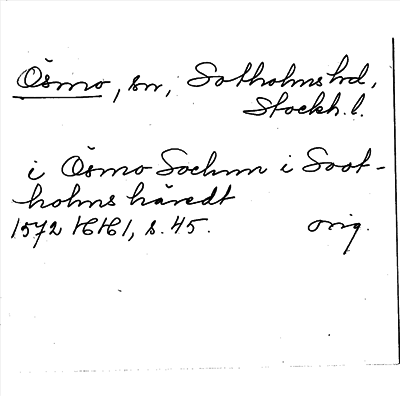 Ösmo, sn, Sotholms hd,
Stockh. l.
i Ösmo Sochnn i Soot-
holms häredt
1572 HH1, s. 45. orig.